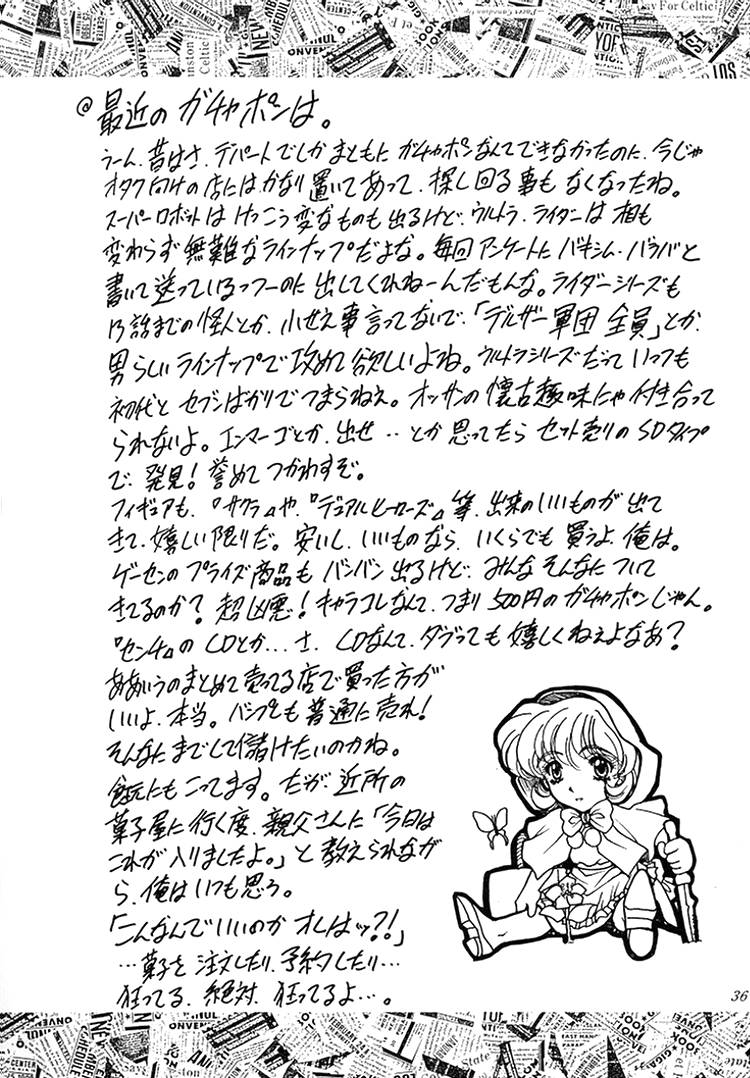 @最近のガチャポンは。
うーん、昔はさ、デパートでしかまともにガチャポンなんてできなかったのに、今じゃ
オタク向けの店にはかなり置いてあって、探し回る事もなくなったね。
スーパーロボットはけっこう変なものも出るけど、ウルトラ、ライダーは相も
変わらず無難なラインナップだよな。毎回アンケートにバキシム・バラバと
書いて送っているっつーのに出してくれねーんだもんな。ライダーシリーズも
13話までの怪人とか、小せえ事言ってないで、「デルザー軍団 全員」とか、
男らしいラインナップで攻めて欲しいよね。ウルトラシリーズだっていっつも
初代とセブンばかりでつまらねえ。オッサンの懐古趣味にゃ付き合って
られないよ。エンマーゴとか、出せ‥とか思ってたらセット売りのSDタイプ
で、発見!誉めてつかわすぞ。
フィギュアも、『サクラ』や、『デュアルヒーローズ』等、出来のいいものが出て
きて、嬉しい限りだ。安いし、いいものなら、いくらでも買うよ、俺は。
ゲーセンのプライズ商品もバンバン出るけど、みんなそんなについて
きてるのか?超凶悪!キャラコレなんて、つまり500円のガチャポンじゃん。
『センチ』のCDとか…さ、CDなんて、ダブっても嬉しくねえよなあ?
ああいうのまとめて売ってる店で買った方が
いいよ、本当。バンプレも普通に売れ!
そんなにまでして儲けたいのかね。
食玩にもこってます。だが、近所の
菓子屋に行く度、親父さんに「今日は
これが入りましたよ。」と教えられなが
ら、俺はいつも思う。
「こんなんでいいのかオレはッ?!」
…菓子を注文したり、予約したり…
狂ってる、絶対、狂ってるよ…。
36